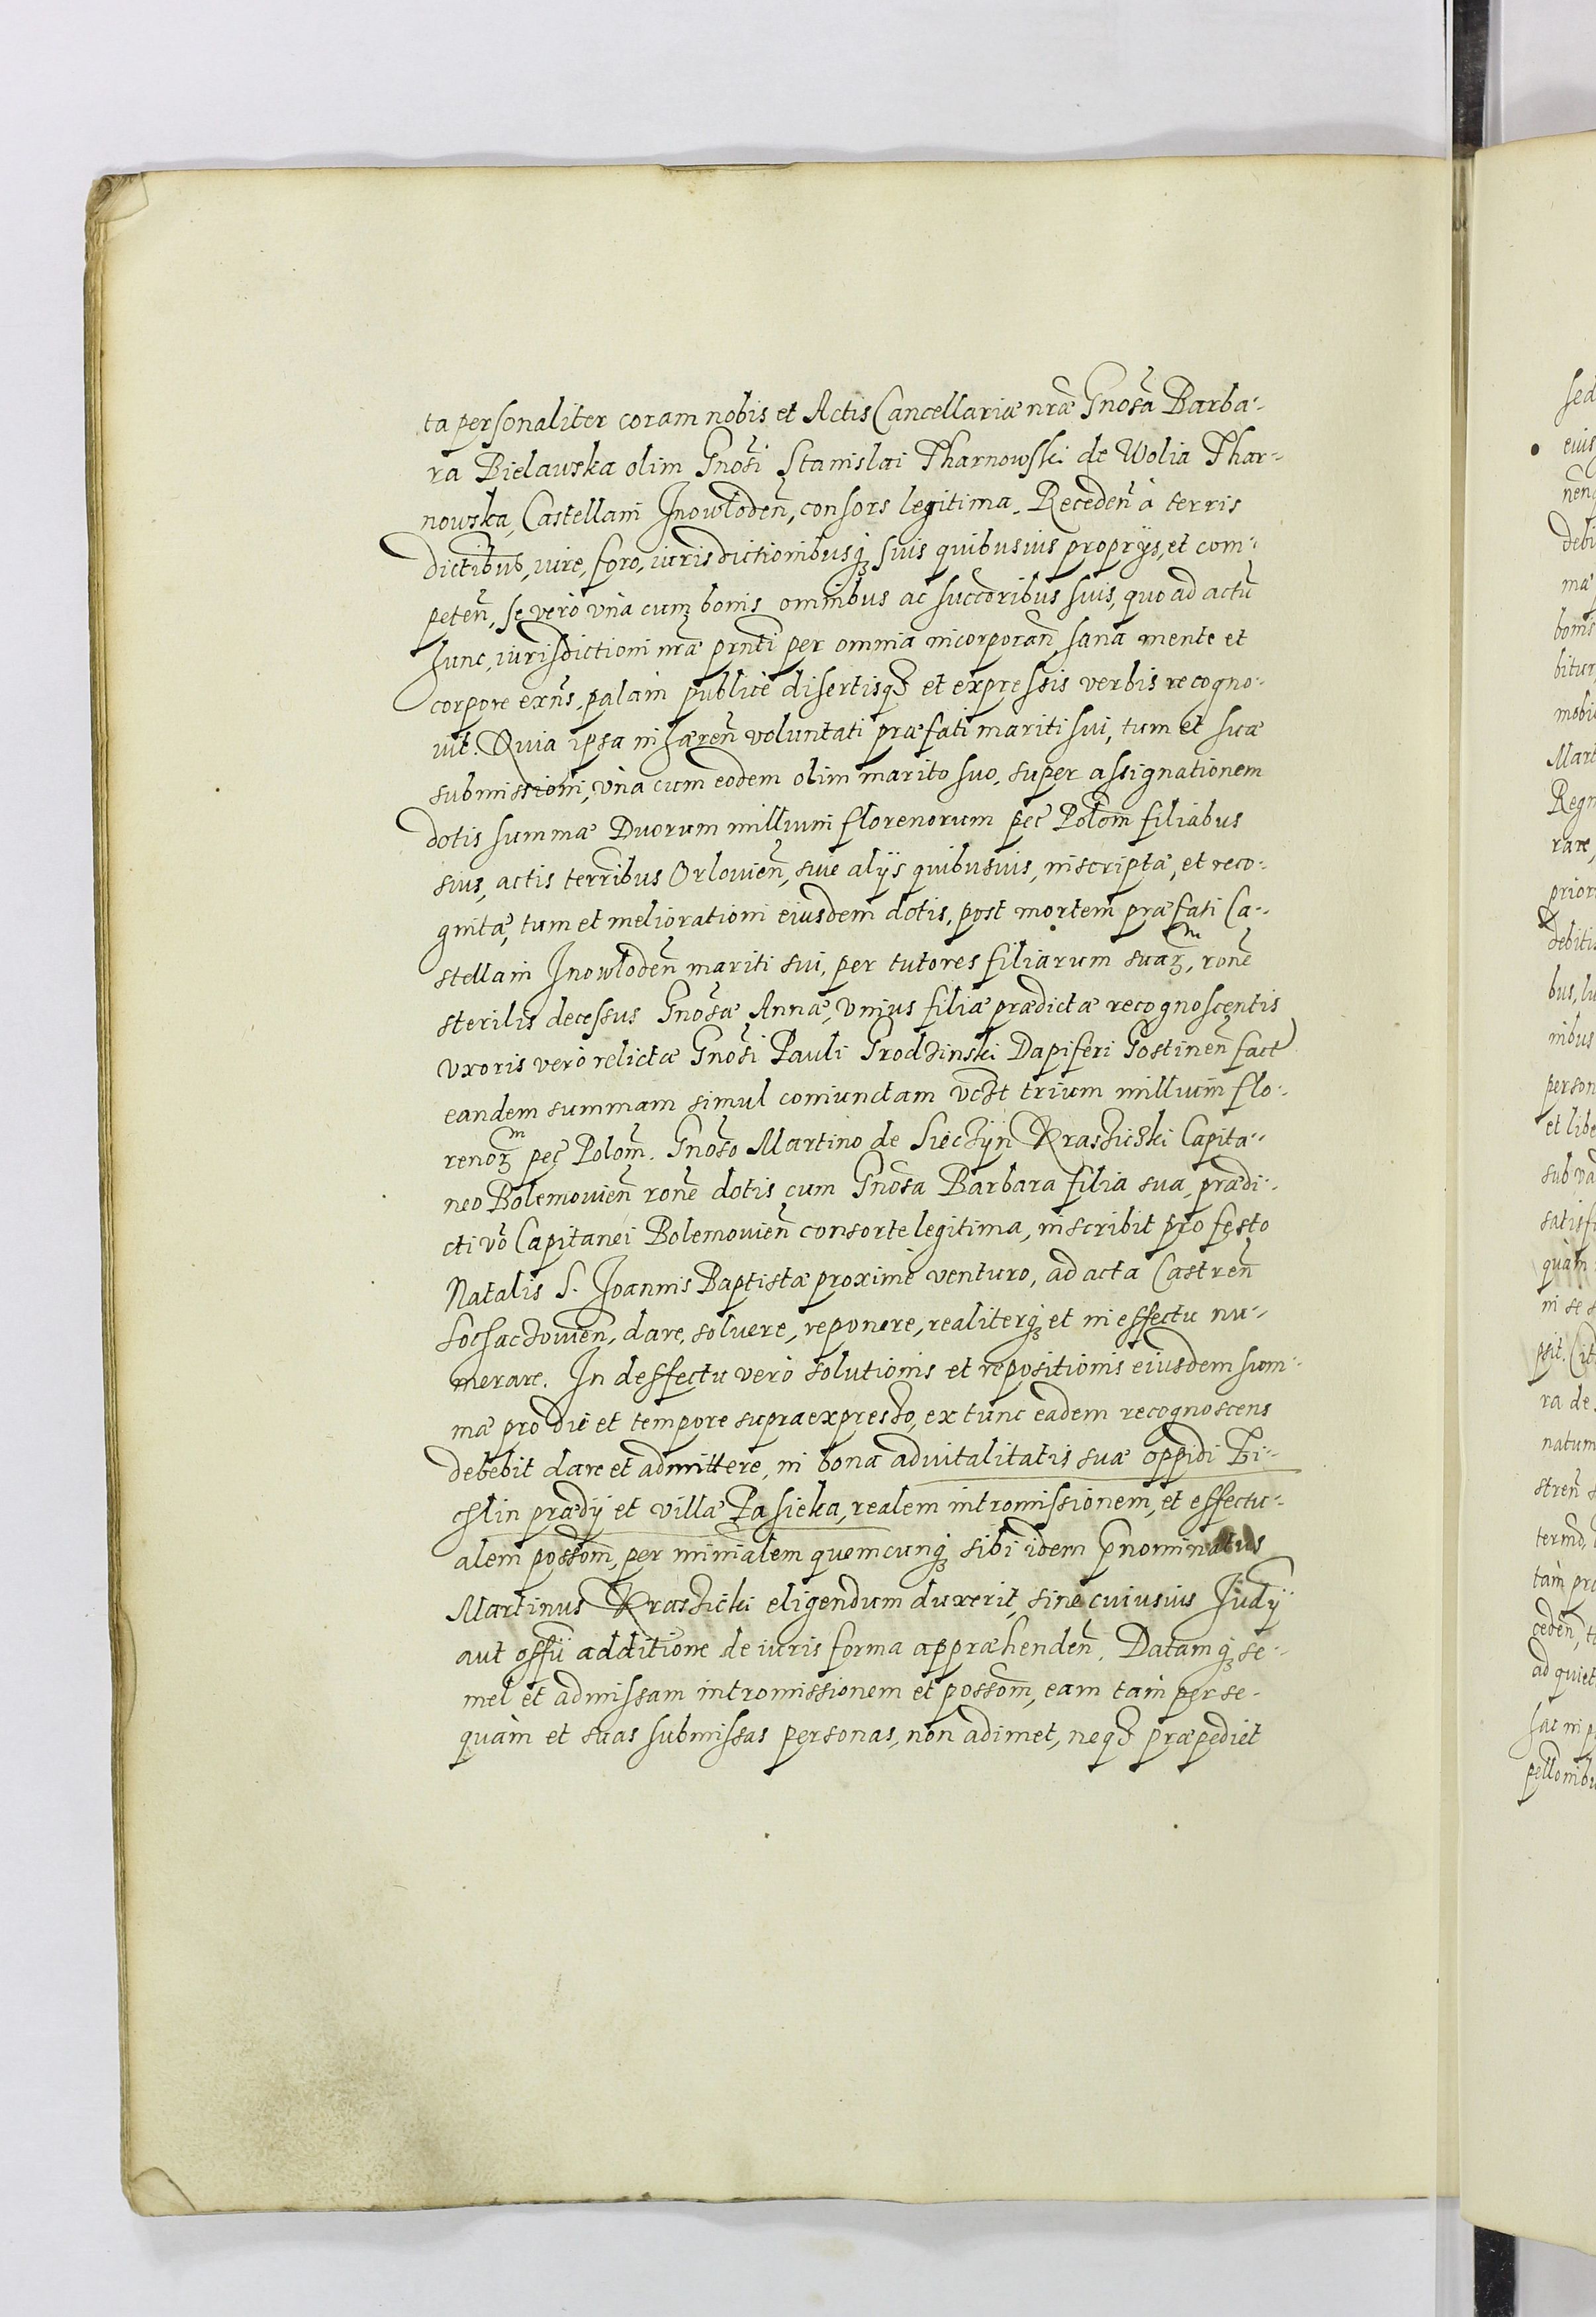 ta personaliter coram nobis et Actis Cancellariæ nr̃æ Gnosã Barba-
ra Bielawska olim Gnosi Stanislai Tharnowski de Wolia Thar-
nowska, Castellani Inowłodeñ, consors legitima. Recedeñ à terris
dictibus, iure, foro, iurisdictionibusq́; suis quibusuis proprÿs, et com-
peteñ, se verò vnà cum bonis omnibus ac succoribus suis, quo ad actũ
hunc, iurisdictioni nræ prñti per omnia incorporañ, sana mente et
corpore exñs, palàm publicè disertisq; et expressis verbis recogno-
uit. Quia ipsa inhæreñ voluntati præfati mariti sui, tum et suæ
submissioni, vnà cum eodem olim marito suo, super assignationem
dotis summæ Duorum millium florenorum pec Polom filiabus
suis, actis terribus Orlouieñ, siue alÿs quibusuis, inscriptæ, et reco-
gnitæ, tum et meliorationi eiusdem dotis, post mortem præfati Ca-
stellani Inowlodeñ mariti sui, per tutores filiarum suaꝝ, ronẽ
sterilis decessus Gnosæ Annæ, vnius filiæ prædictæ recognoscentis
vxoris verò relictæ Gnosi Pauli Grodzinski Dapiferi Gostineñ fact
eandem summam simul coniunctam vdzt trium millium flo-
renoꝝ pec Polom̃. Gnoso Martino de Siećżyn Krasżicżki Capita-
neo Bolemouieñ ronẽ dotis cum Gnosa Barbara filia sua, prædi-
cti võ Capitanei Bolemouieñ consorte legitima, inscribit pro festo
Natalis S. Joannis Baptistæ proximè venturo, ad acta Castreñ
Sochaczouieñ, dare, soluere, reponere, realiterq́; et in effectu nu-
merare. In deffectu verò solutionis et repositionis eiusdem sum-
mæ pro die et tempore supraexpresso, ex tunc eadem recognoscens
debebit dare et admittere, in bona aduitalitatis suæ oppidi Bi-
chlin prædÿ et villæ Pasieka, realem intromissionem, et effectu-
alem possom̃, per minialem quemcunq́; sibi idem p̃nominatus
Martinus Krasżicki eligendum duxerit, sine cuiusuis Judÿ
aut offÿ additione de iuris forma appræhendeñ. Datamq́; se-
mel et admissam intromissionem et possom̃, eam tàm per se-
quàm et suas submissas personas, non adimet, neq; præpediet